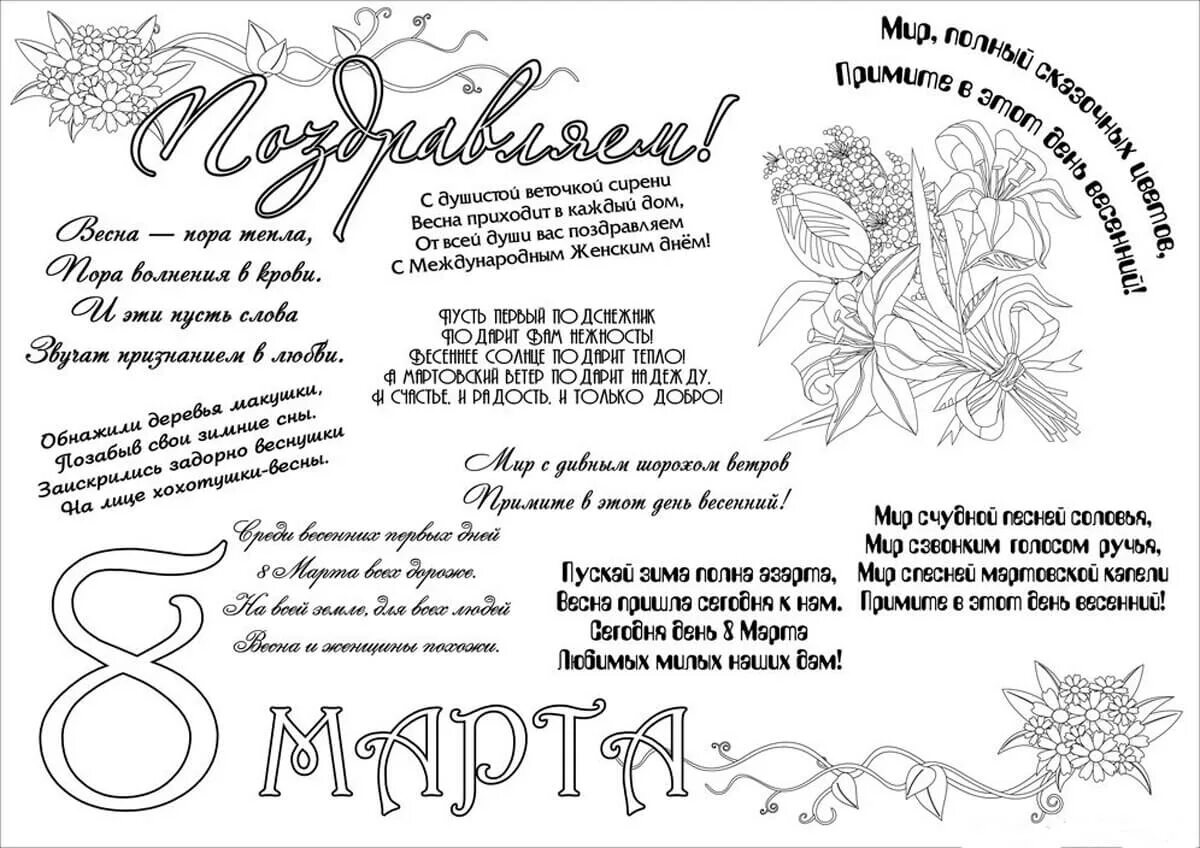 Поздравляем!
Мир, полный сказочных цветов,
Примите в этот день весенний!
С душистой веточкой сирени
Весна приходит в каждый дом,
От всей души вас поздравляем
С Международным Женским днём!
Весна — пора тепла,
Пора волнения в крови.
И эти пусть слова
Звучат признанием в любви.
Пусть первый подснежник
Подарит Вам нежность!
Весеннее солнце подарит тепло!
А мартовский ветер подарит надежду,
И счастье, и радость, и только добро!
Обнажили деревья макушки,
Позабыв свои зимние сны.
Заискрились задорно веснушки
На лице хохотушки-весны.
Мир с дивным шорохом ветров
Примите в этот день весенний!
Среди весенних первых дней
8 Марта всех дороже.
На всей земле, для всех людей
Весна и женщины похожи.
Пускай зима полна азарта,
Весна пришла сегодня к нам.
Сегодня день 8 Марта
Любимых милых наших дам!
Мир счудной песней соловья,
Мир сзвонким голосом ручья,
Мир спесней мартовской капели
Примите в этот день весенний!
8 МАРТА